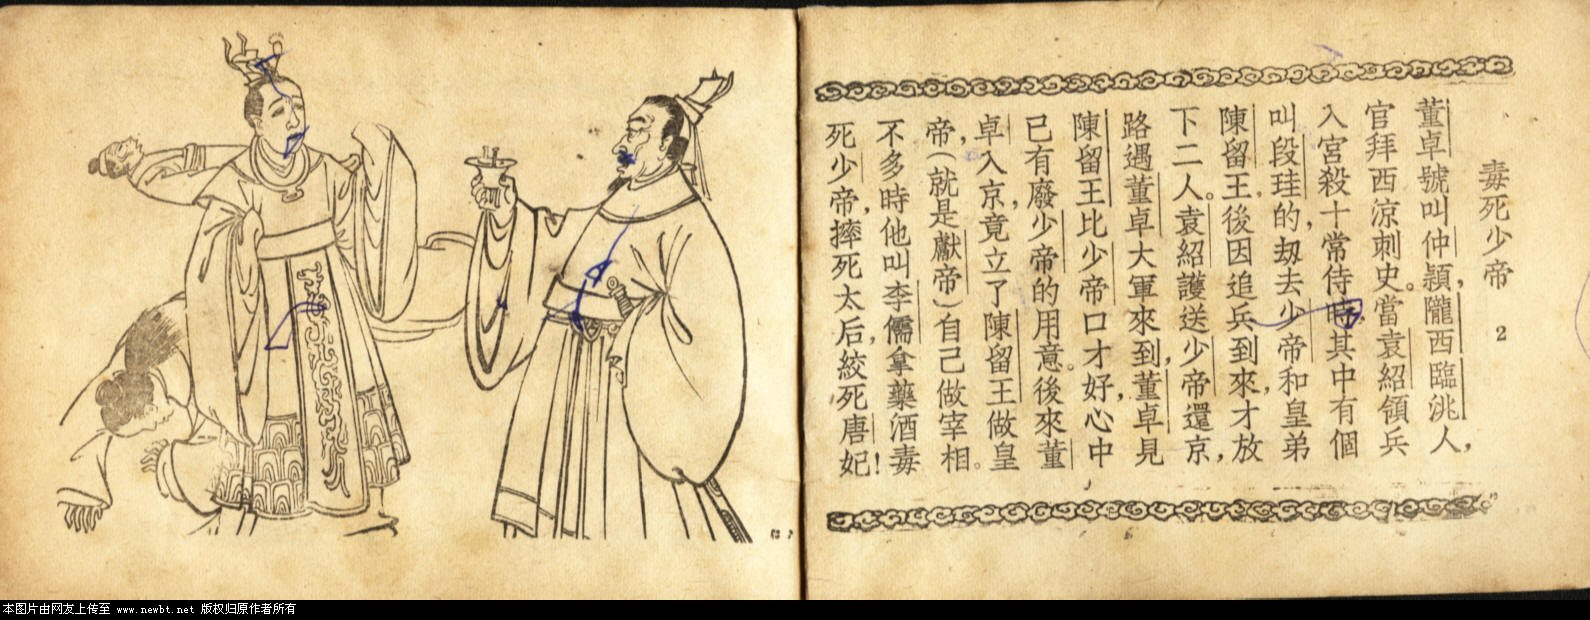 毒死少帝 2
董卓號叫仲穎，隴西臨洮人，
官拜西涼刺史。當袁紹領兵
入宮殺十常侍時，其中有個
叫段珪的，刼去少帝和皇弟
陳留王，後因追兵到來，才放
下二人。袁紹護送少帝還京，
路遇董卓大軍來到，董卓見
陳留王比少帝口才好，心中
已有廢少帝的用意。後來董
卓入京，竟立了陳留王做皇
帝，（就是獻帝）自己做宰相。
不多時他叫李儒拿藥酒毒
死少帝，摔死太后，絞死唐妃！
本图片由网友上传至 www.newbt.net 版权归原作者所有